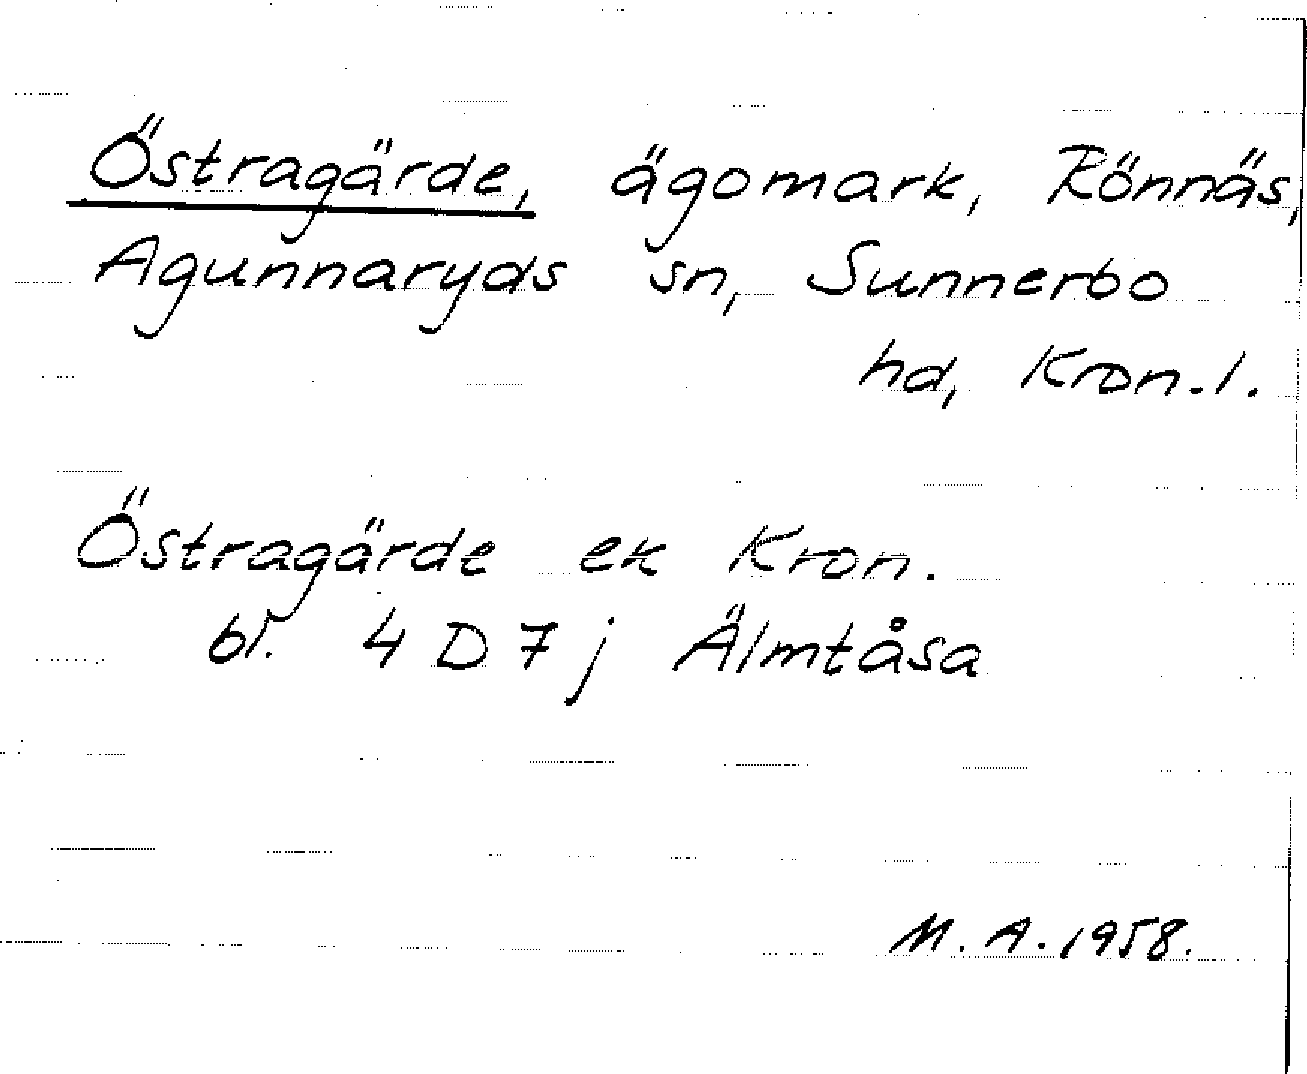 Östragärde, ägomark, Rönnäs,
Agunnaryds sn, Sunnerbo
hd, Kron. l.
Östragärde ek Kron.
bl. 4 D 7 j Älmtåsa
M. A. 1958.